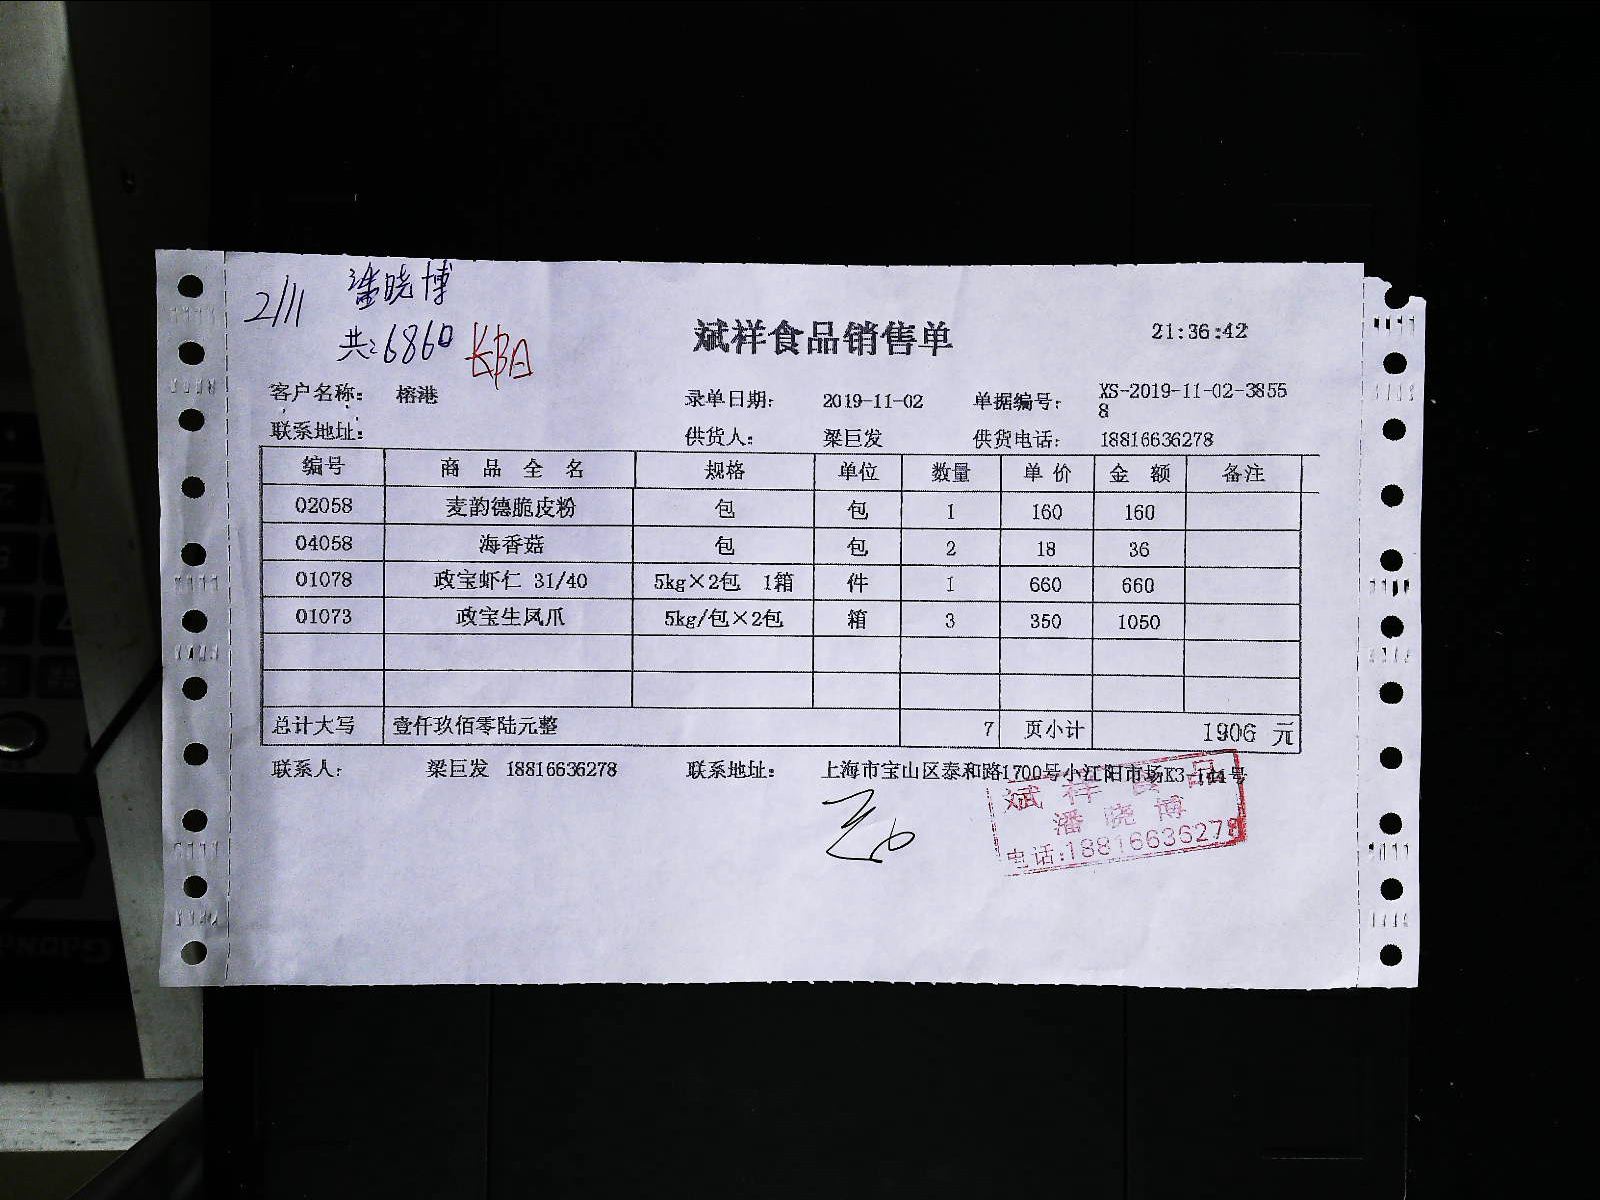 2/11 潘晓博
共:6860 长阳
斌祥食品销售单 21:36:42
客户名称: 榕港 录单日期: 2019-11-02 单据编号: XS-2019-11-02-38558
联系地址: 供货人: 梁巨发 供货电话: 18816636278
编号 商品全名 规格 单位 数量 单价 金额 备注
02058 麦韵德脆皮粉 包 包 1 160 160
04058 海香菇 包 包 2 18 36
01078 政宝虾仁 31/40 5kg×2包 1箱 件 1 660 660
01073 政宝生凤爪 5kg/包×2包 箱 3 350 1050
总计大写 壹仟玖佰零陆元整 7 页小计 1906 元
联系人: 梁巨发 18816636278 联系地址: 上海市宝山区泰和路1700号小江阳市场K3-144号
斌祥食品
潘晓博
电话:18816636278